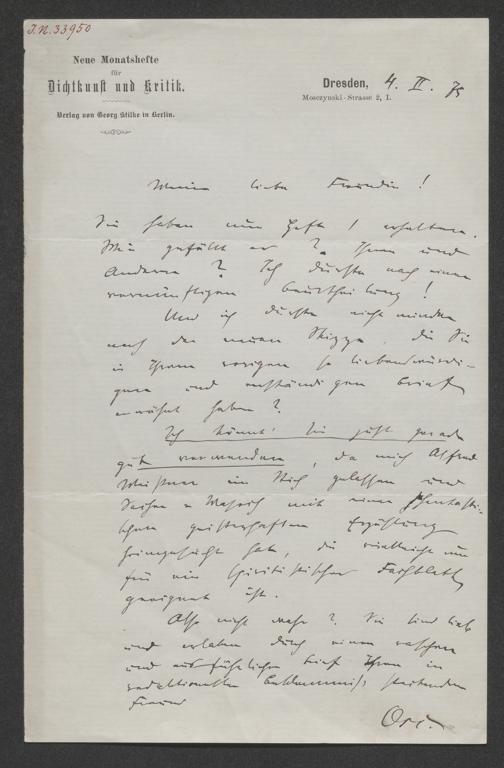 J.N. 33950
Neue Monatshefte
für
Dichtkunst und Kritik.
Verlag von Georg Stilke in Berlin.
Dresden, 4. II. 75
Mosczynski-Strasse 2, I.
Meine liebe Freundin!
Sie haben nun Heft 1 erhalten.
Wie gefällt er? Ihnen und
Anderen? Ich dürste nach einer
vernünftigen Beurtheilung!
Und ich dürste nicht minder
nach der neuen Skizze, die Sie
in Ihrem vorigen so liebenswürdi-
gen und anständigen Briefe
erwähnt haben?
Ich könnt' Sie just gerade
gut verwenden, da mich Alfred
Meißner im Stich gelassen und
Sacher-Masoch mit einer phantasti-
schen geisterhaften Erzählung
heimgesucht hat, die vielleicht nur
für ein spiritistisches Fachblatt
geeignet ist.
Also nicht wahr? Sie sind lieb
und erlaben durch einen raschen
und ausführlichen Brief Ihren in
redaktioneller Beklemmniß
Freund
Osc.